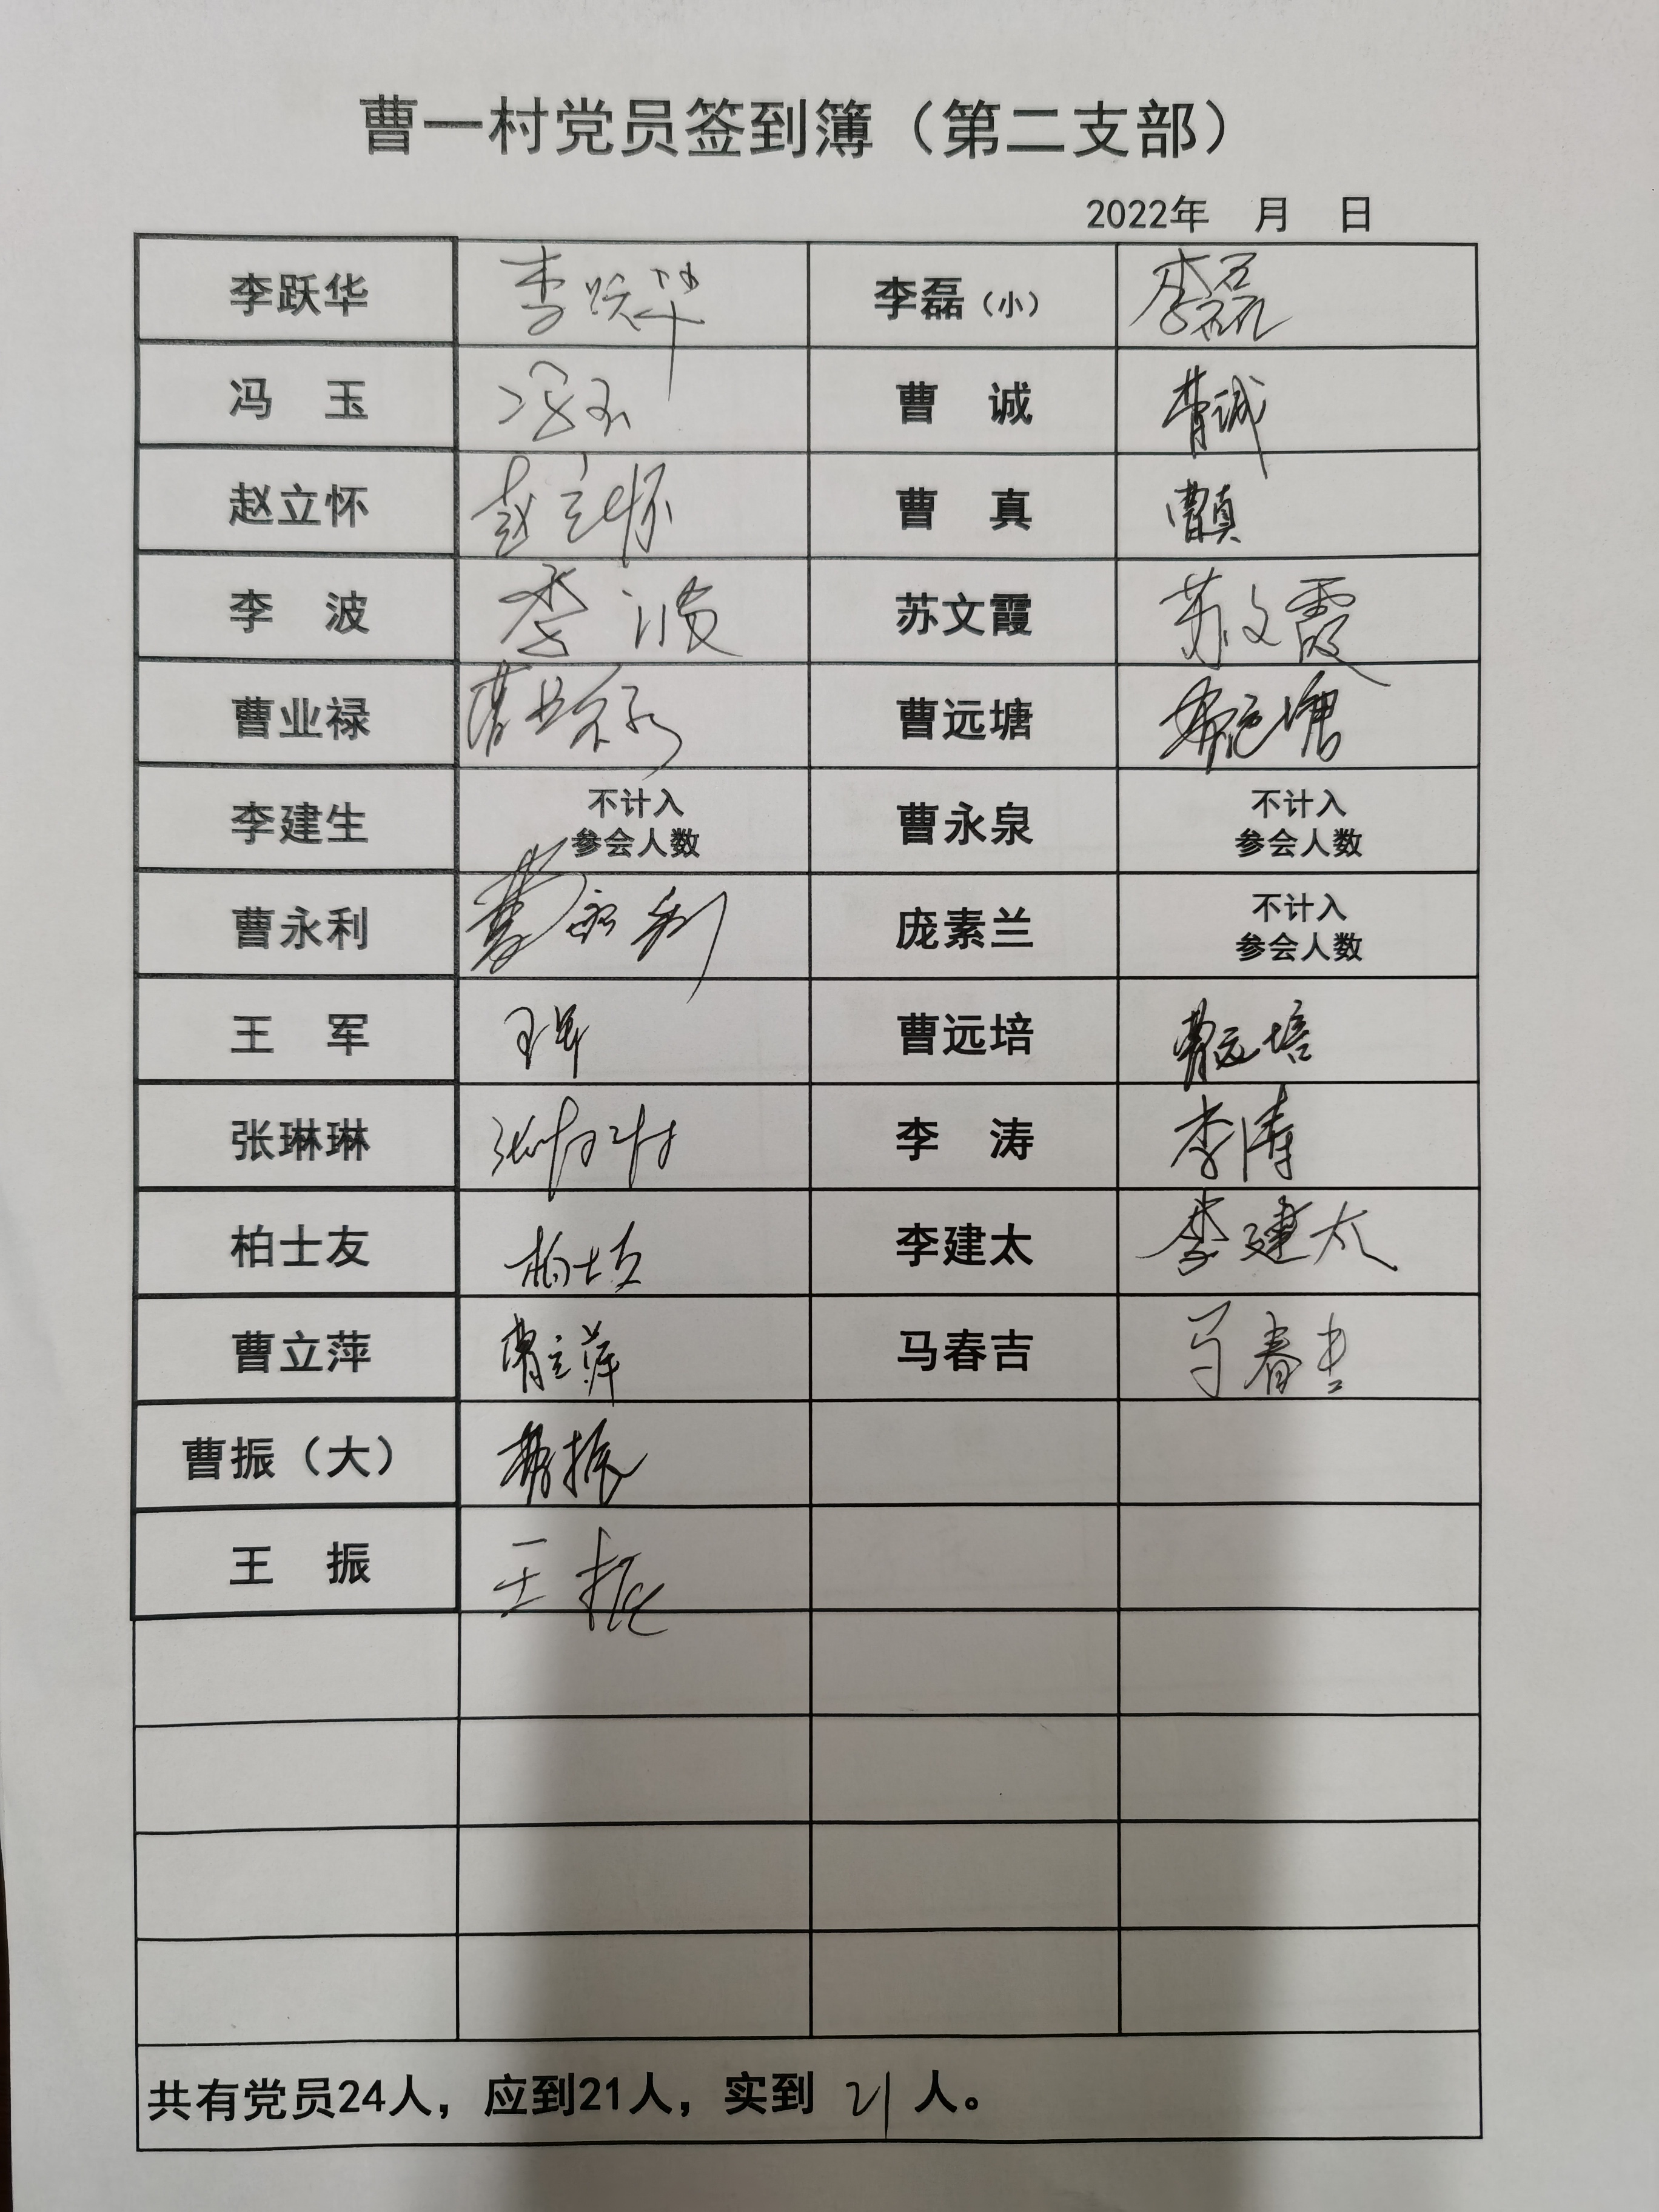 曹一村党员签到簿（第二支部）
2022年 月 日
李跃华 李跃华 李磊（小） 李磊
冯 玉 冯玉 曹 诚 曹诚
赵立怀 赵立怀 曹 真 曹真
李 波 李波 苏文霞 苏文霞
曹业禄 曹业禄 曹远塘 曹远塘
李建生 不计入 曹永泉 不计入
参会人数 参会人数
曹永利 曹永利 庞素兰 不计入
参会人数
王 军 王军 曹远培 曹远培
张琳琳 张琳琳 李 涛 李涛
柏士友 柏士友 李建太 李建太
曹立萍 曹立萍 马春吉 马春吉
曹振（大） 曹振
王 振 王振
共有党员24人，应到21人，实到 21 人。